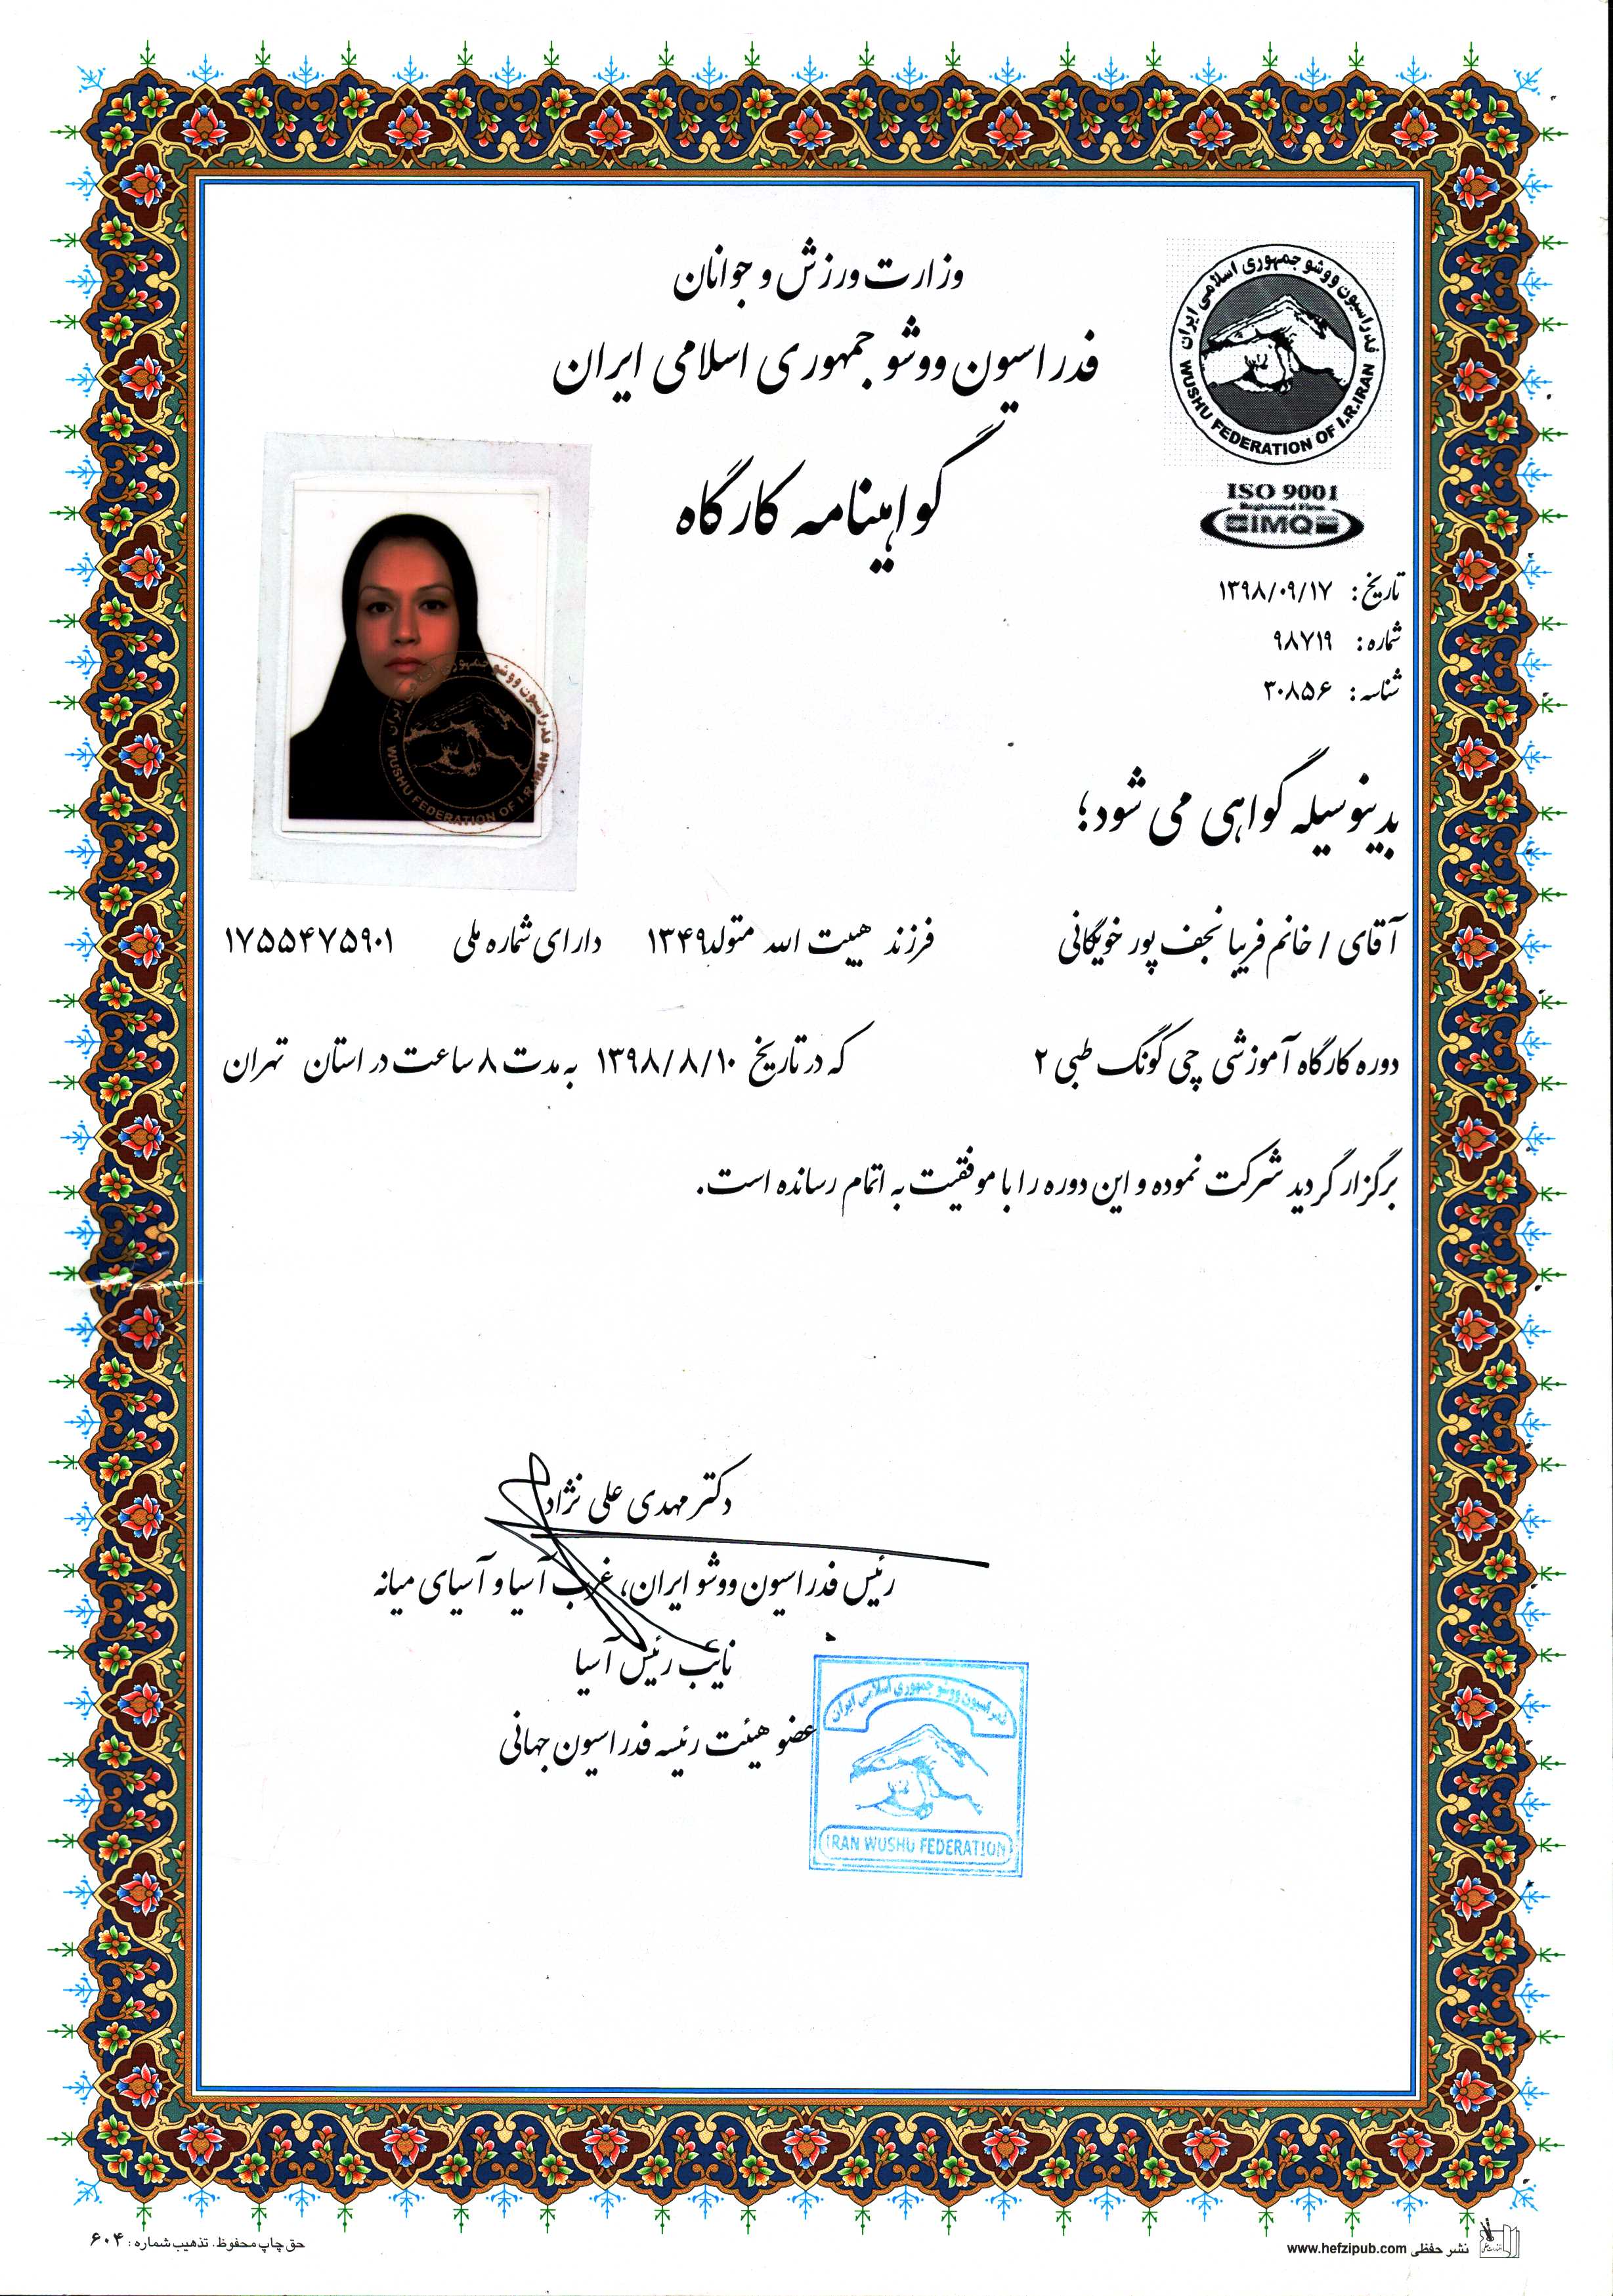 وزارت ورزش و جوانان
فدراسیون ووشو جمهوری اسلامی ایران
گواهینامه کارگاه
فدراسیون ووشو جمهوری اسلامی ایران
WUSHU FEDERATION OF I.R.IRAN
ISO 9001
Registered Firm
IMQ
تاریخ: ۱۳۹۸/۰۹/۱۷
شماره: ۹۸۷۱۹
شناسه: ۳۰۸۵۶
فدراسیون ووشو جمهوری اسلامی ایران
WUSHU FEDERATION OF I.R.IRAN
بدینوسیله گواهی می شود؛
آقای / خانم فریبا نجف پور خویگانی فرزند هیبت الله متولد ۱۳۴۹ دارای شماره ملی ۱۷۵۵۴۷۵۹۰۱
دوره کارگاه آموزشی چی کونگ طبی ۲ که در تاریخ ۱۳۹۸/۸/۱۰ به مدت ۸ ساعت در استان تهران
برگزار گردید شرکت نموده و این دوره را با موفقیت به اتمام رسانده است.
دکتر مهدی علی نژاد
رئیس فدراسیون ووشو ایران، غرب آسیا و آسیای میانه
نایب رئیس آسیا
عضو هیئت رئیسه فدراسیون جهانی
فدراسیون ووشو جمهوری اسلامی ایران
IRAN WUSHU FEDERATION
نشر حفظی www.hefzipub.com
حق چاپ محفوظ. تذهیب شماره: ۶۰۴